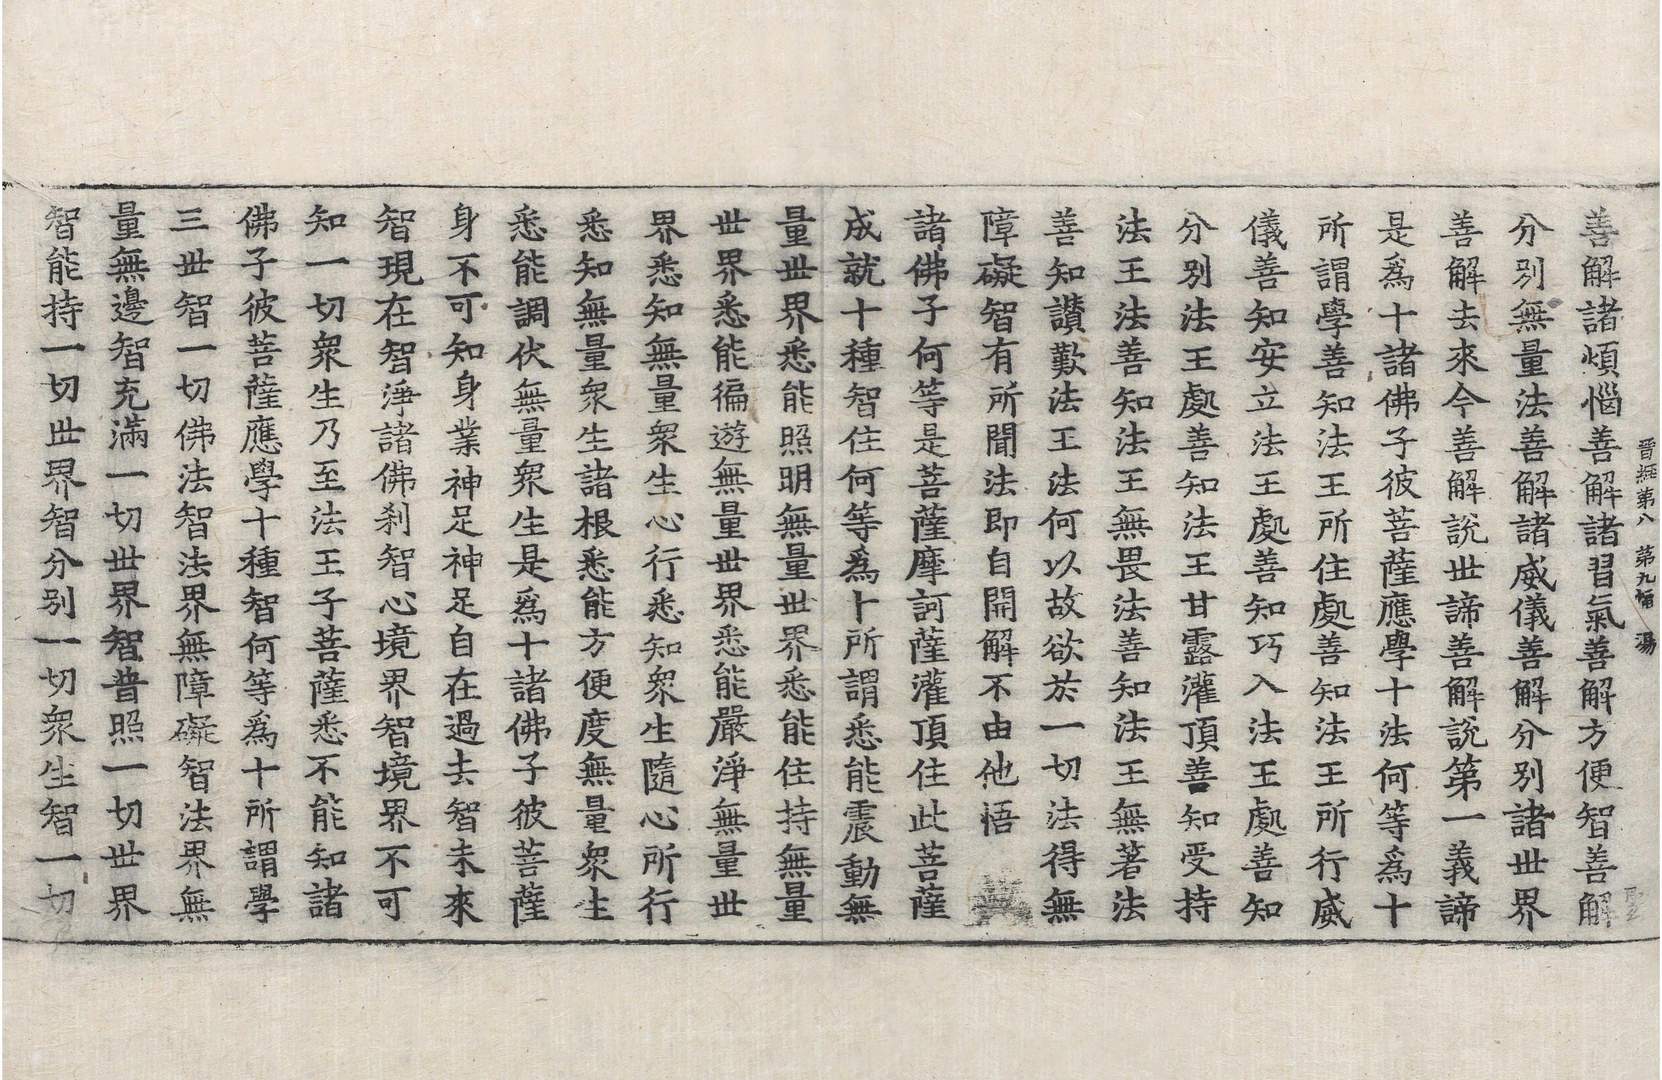 晉經第八 第九幅 湯
善解諸煩惱善解諸習氣善解方便智善解
分別無量法善解諸威儀善解分別諸世界
善解去來今善解說世諦善解說第一義諦
是爲十諸佛子彼菩薩應學十法何等爲十
所謂學善知法王所住處善知法王所行威
儀善知安立法王處善知巧入法王處善知
分別法王處善知法王甘露灌頂善知受持
法王法善知法王無畏法善知法王無著法
善知讚歎法王法何以故欲於一切法得無
障礙智有所聞法即自開解不由他悟
諸佛子何等是菩薩摩訶薩灌頂住此菩薩
成就十種智住何等爲十所謂悉能震動無
量世界悉能照明無量世界悉能住持無量
世界悉能徧遊無量世界悉能嚴淨無量世
界悉知無量衆生心行悉知衆生隨心所行
悉知無量衆生諸根悉能方便度無量衆生
悉能調伏無量衆生是爲十諸佛子彼菩薩
身不可知身業神足神足自在過去智未來
智現在智淨諸佛刹智心境界智境界不可
知一切衆生乃至法王子菩薩悉不能知諸
佛子彼菩薩應學十種智何等爲十所謂學
三世智一切佛法智法界無障礙智法界無
量無邊智充滿一切世界智普照一切世界
智能持一切世界智分別一切衆生智一切